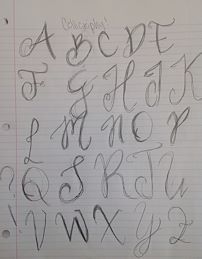 Calligraphy!
A B C D E
F G H I J K
L M N O P
? Q S R T U
! V W X Y Z